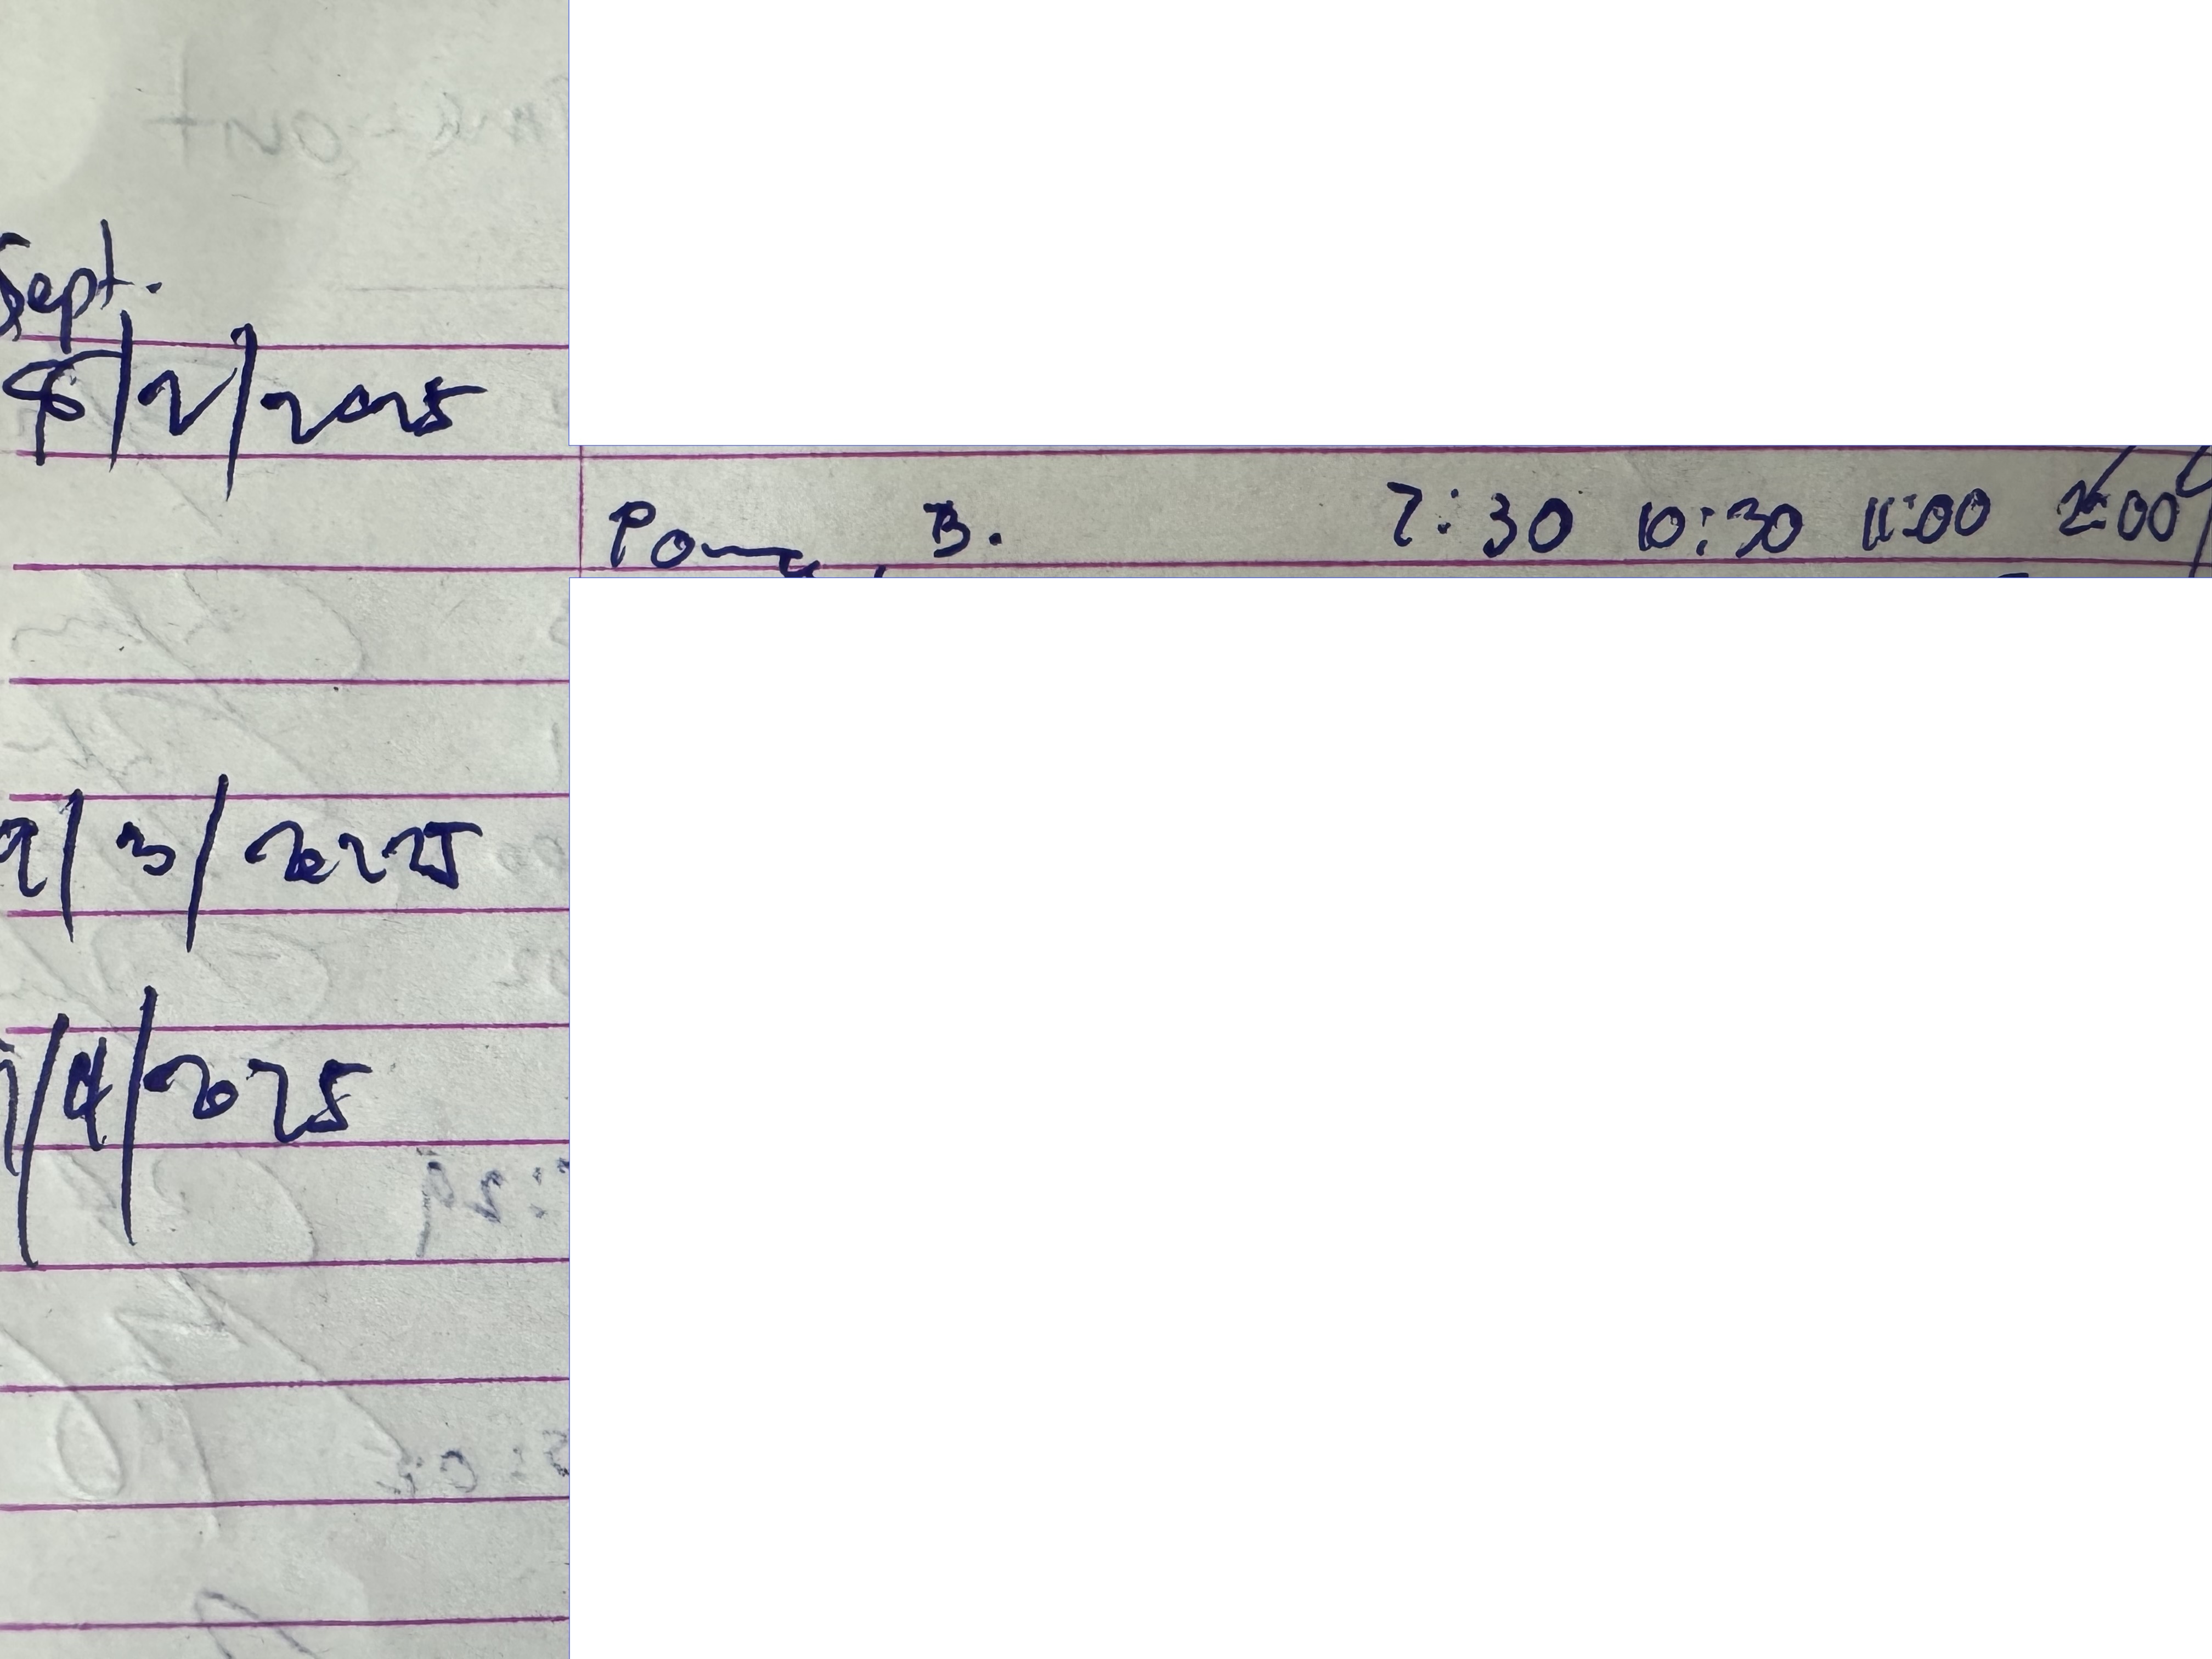 Sept.
/2/2025
B. 7:30 10:30 11:00 2:00
9/3/2025
9/4/2025